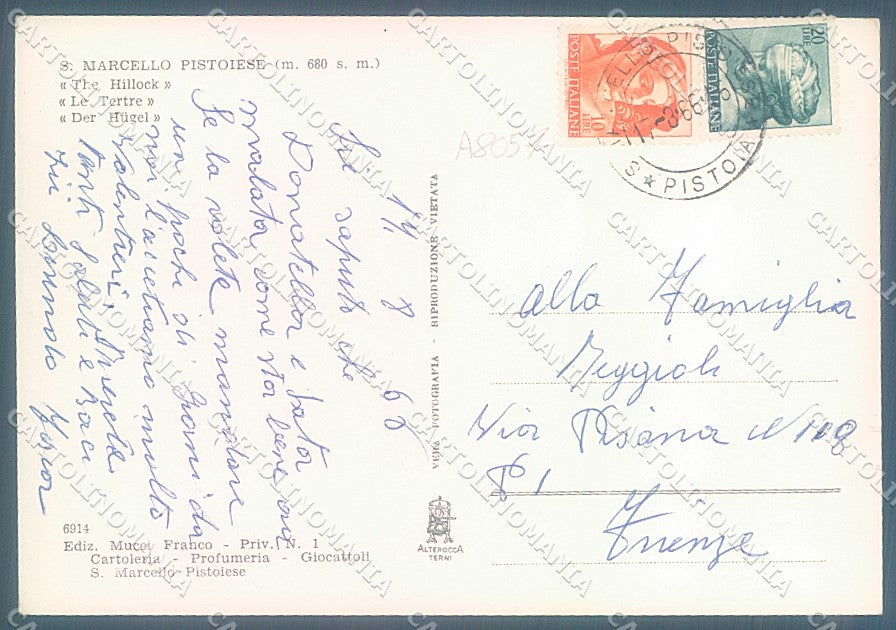 S. MARCELLO PISTOIESE (m. 680 s. m.)
« The Hillock »
« Le Tertre »
« Der Hügel »
14 8 66
saputo che
Donatella è stata
malata, come sta bene ora
Se la volete mandare
un pochi di giorni da
noi l'accettiamo molto
volentieri,
tanti Saluti e Baci
6914
Ediz. Mucci Franco - Priv. N. 1
Cartoleria - Profumeria - Giocattoli
S. Marcello Pistoiese
VERA FOTOGRAFIA - RIPRODUZIONE VIETATA
ALTEROCCA
TERNI
A8057
POSTE ITALIANE
10 LIRE
POSTE ITALIANE
20 LIRE
PISTOIA
alla Famiglia
Meggioli
Via Pisana N
P 1
Firenze
CARTOLINOMANIA